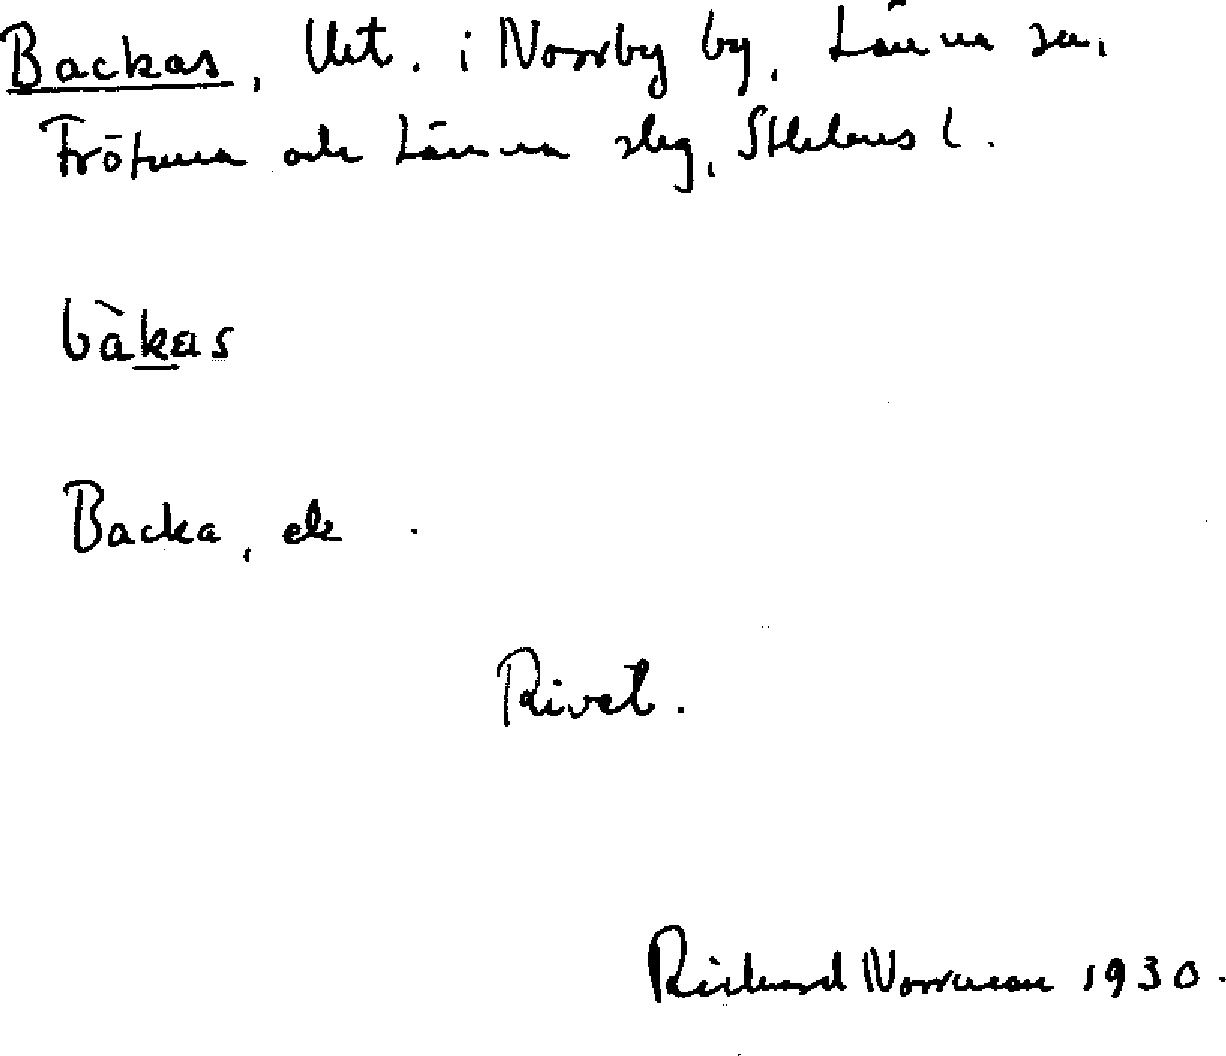 Backas, Utt. i Norrby by, Länna sn,
Frötuna och Länna slg, Sthlms l.
bàkas
Backa, ek .
Rivet.
Richard Norrman 1930.